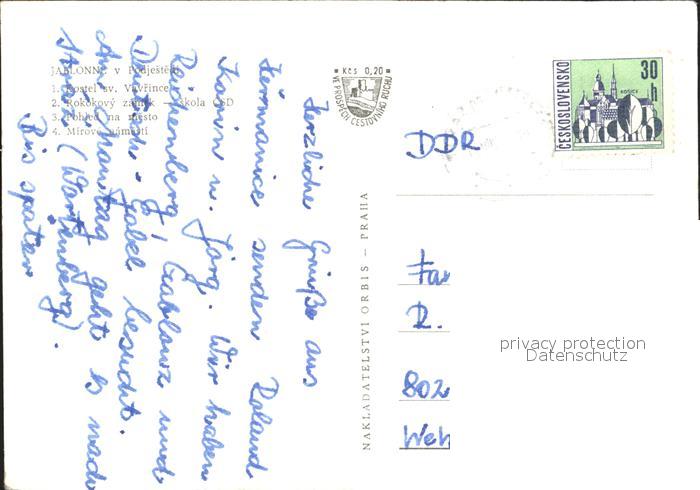 JABLONNÉ v Podještědí
1. Kostel sv. Vavřince
2. Rokokový zámek — škola ČSD
3. Pohled na město
4. Mírové náměstí
Kčs 0,20
VE PROSPĚCH CESTOVNÍHO RUCHU
ČESKOSLOVENSKO
30 h
KOŠICE
NAKLADATELSTVÍ ORBIS — PRAHA
Herzliche Grüße aus
Heřmanice senden Roland
Karin u. Jörg. Wir haben
Reichenberg, Gablonz und
Deutsch-Gabel besucht.
Am Dienstag geht es nach
(Wartenberg).
Bis später
DDR
Fa
R.
802
Weh
privacy protection
Datenschutz